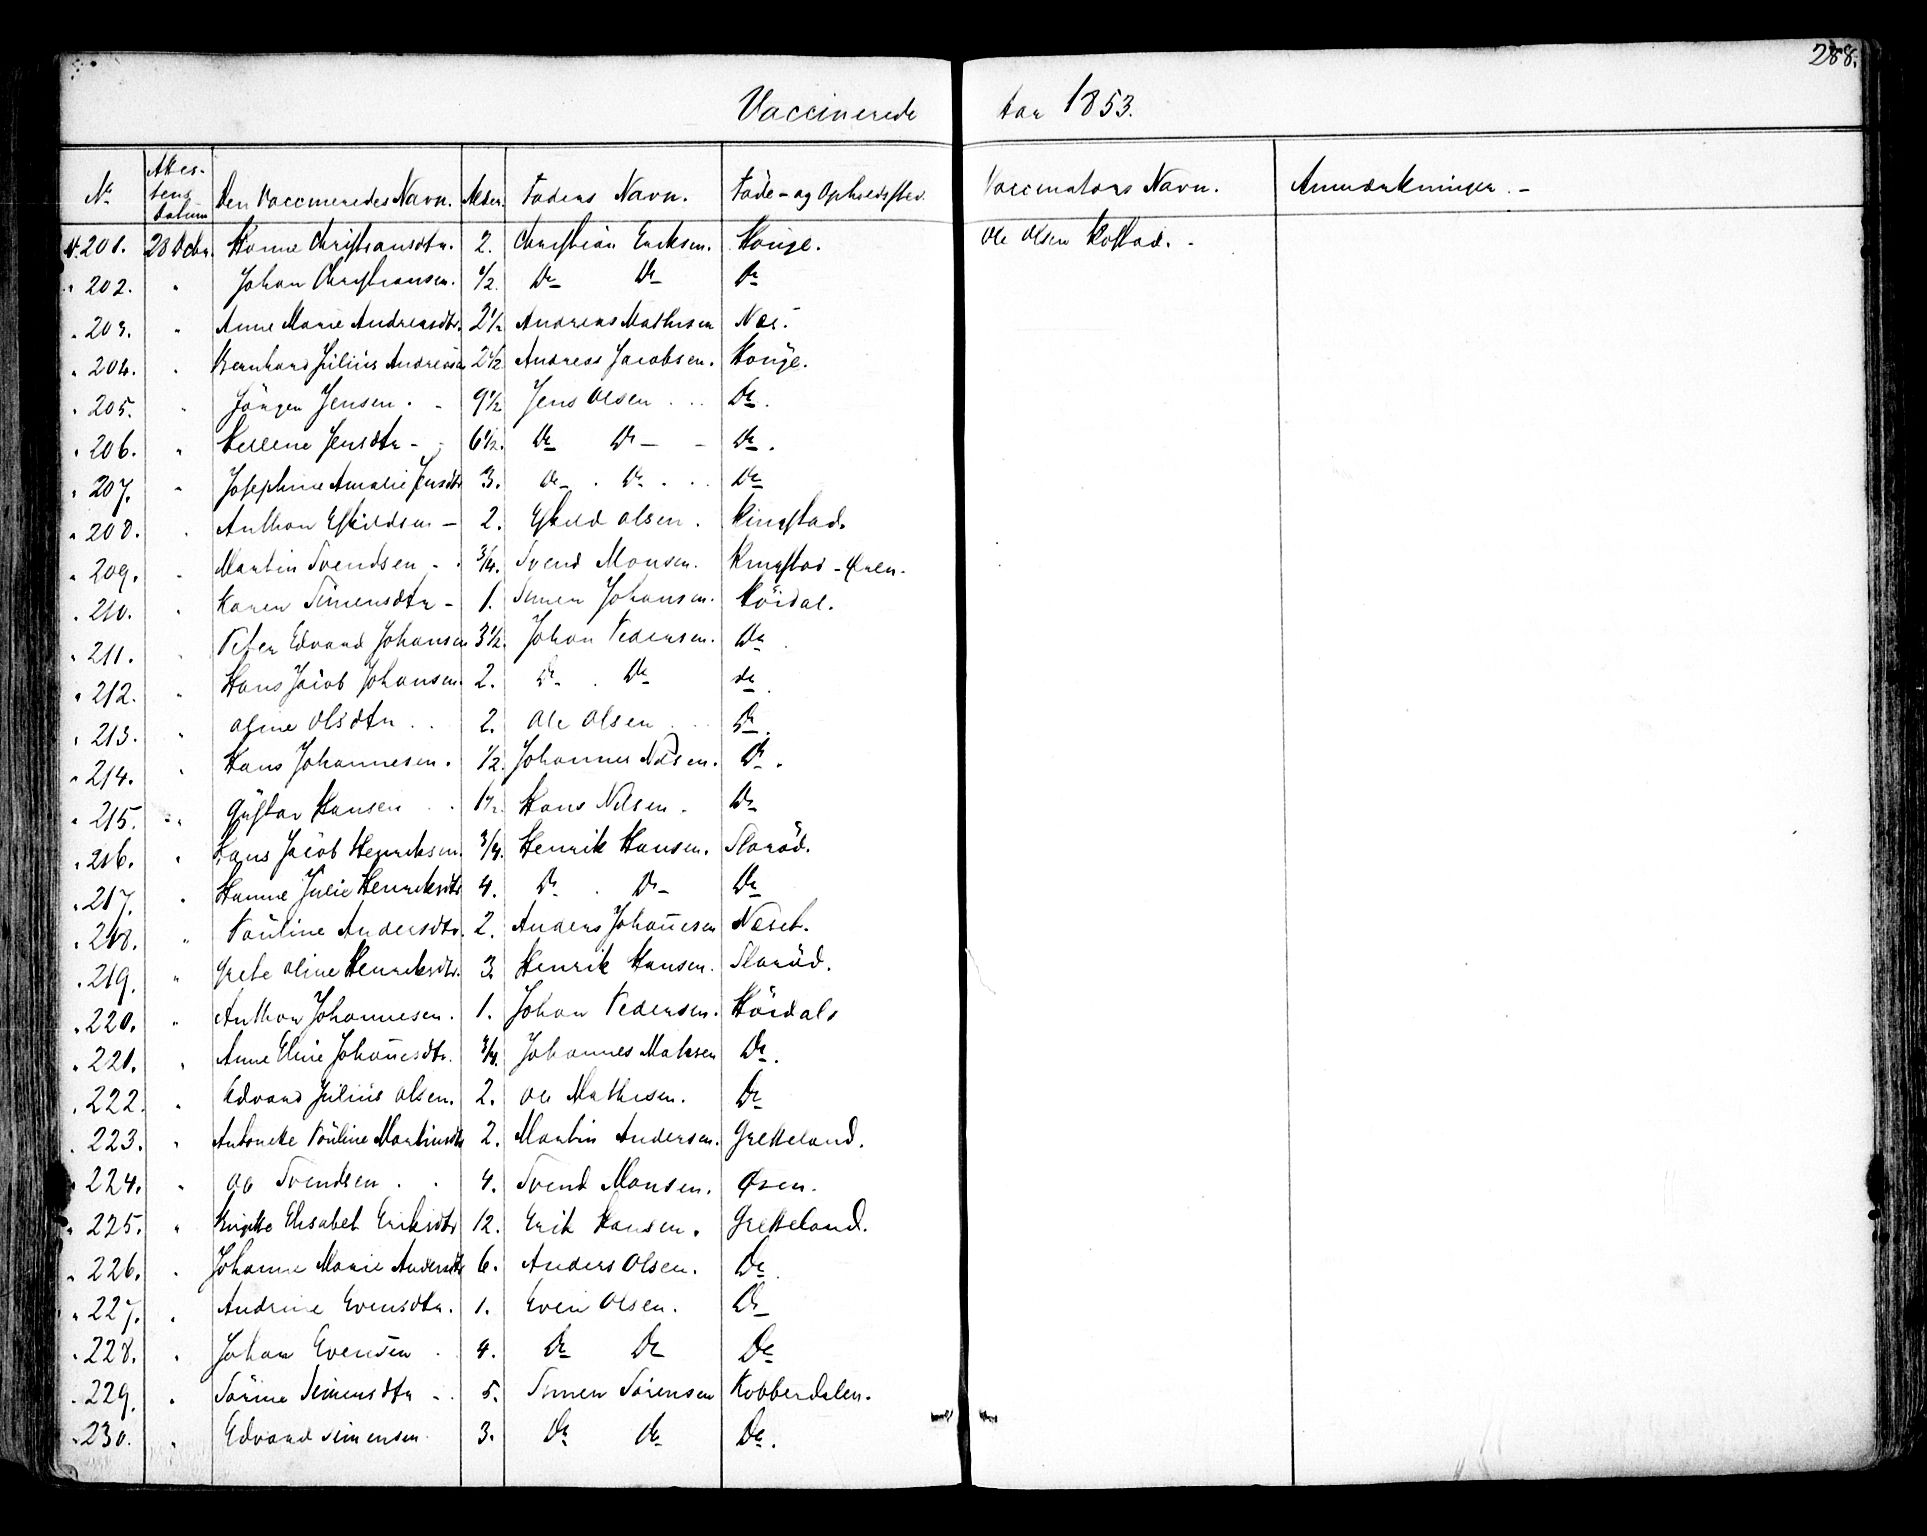 288.
Vaccinerede Aar 1853.
No Attestens Datum Den Vaccineredes Navn. Alder. Faders Navn. Föde- og Opholdssted. Vaccinators Navn. Anmærkninger. -
N. 201. 28 Octbr. Hanne Christiansdtr. 2. Christian Eriksen. Houge. Ole Olsen Kolstad. -
" 202. " Johan Christiansen. 1/2. Do Do Do
" 203. " Anne Marie Andreasdtr. 2 1/2 Andreas Mathisen Nes.
" 204. " Bernhard Julius Andreasen 2 1/2 Andreas Jacobsen. Houge.
" 205. " Jörgen Jensen. - 9 1/2 Jens Olsen Do.
" 206. " Hellene Jensdtr - 6 1/2. Do Do - - Do.
" 207. " Josephine Amalie Jensdtr 3. Do . Do . . . Do
" 208. " Anthon Eskildsen - 2. Eskild Olsen. Ringstad.
" 209. " Martin Svendsen - . 3/4. Svend Monsen. Ringstad - Øren.
" 210. " Karen Simensdtr - 1. Simen Johansen. Höidal.
" 211. " Peter Edvard Johansen 3 1/2. Johan Pedersen. Do
" 212. " Hans Jacob Johansen. 2. Do . Do do
" 213. " Oline Olsdtr . . 2. Ole Olsen Do.
" 214. " Hans Johannesen. 1/2. Johannes Nilsen. Do.
" 215. " Gustav Hansen . . 1 1/2. Hans Nilsen. Do
" 216. " Hans Jacob Henriksen. 3/4. Henrik Hansen. Slaröd.
" 217. " Hanne Julie Henriksdtr 4. Do . Do - Do
" 218. " Pauline Andersdtr. 2. Anders Johanesen Neset.
" 219. " Grete Oline Henriksdtr. 3. Henrik Hansen. Slaröd.
" 220. " Anthon Johannesen. 1. Johan Pedersen. Höidals
" 221. " Anne Eline Johanesdtr. 3/4. Johannes Matisen Do.
" 222. " Edvard Julius Olsen. 2. Ole Mathisen. Do
" 223. " Antonette Pauline Martinsdtr 2. Martin Andersen. Gretteland.
" 224. " Ole Svendsen . . 4. Svend Monsen. Øren.
" 225. " Birgitte Elisabet Eriksdtr 12. Erik Hansen. Gretteland.
" 226. " Johanne Marie Andersdtr 6. Anders Olsen. Do
" 227. " Andrine Evensdtr. 1. Even Olsen. Do
" 228. " Johan Evensen . 4. Do Do Do
" 229. " Sörine Simensdtr - . 5. Simen Sörensen Kobberdalen.
" 230. " Edvard Simensen. 3. Do do Do.